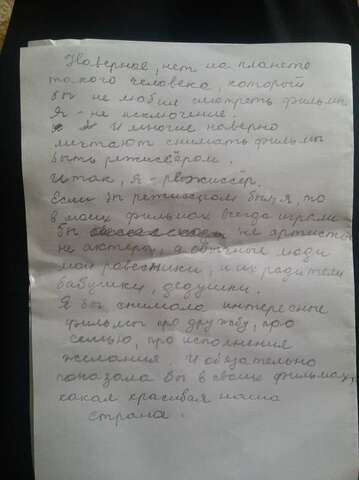 Наверное, нет на планете
такого человека, который
бы не любил смотреть фильмы.
Я - не исключение.
И многие наверно
мечтают снимать фильмы
быть режиссёром.
Итак, я - режиссёр.
Если бы режисёром была я, то
в моих фильмах всегда играли
бы не артисты
не актеры, а обычные люди
мои ровестники, и их родители
бабушки, дедушки.
Я бы снимала интересные
фильмы про дружбу, про
семью, про исполнения
желания. И обязательно
показала бы в своих фильмах,
какая красивая наша
страна.